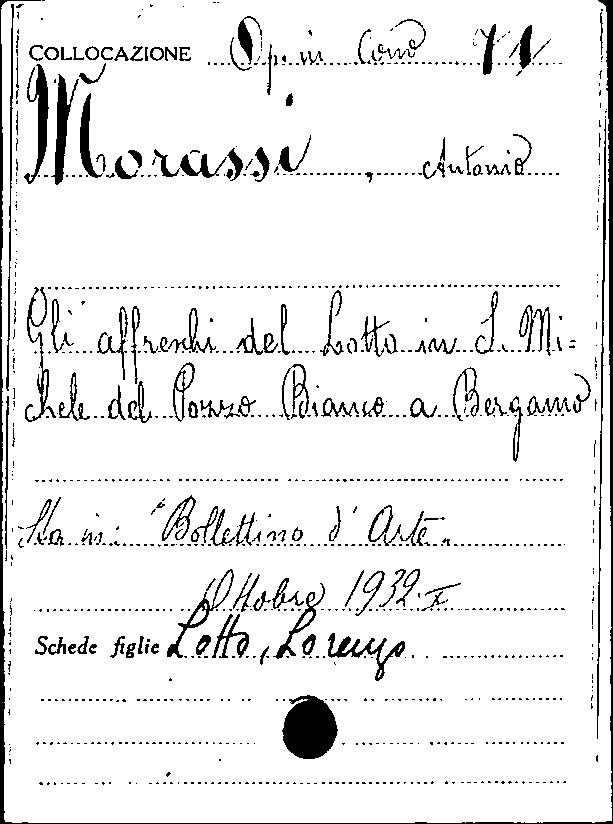 COLLOCAZIONE Op. in Cons 71
Morassi, Antonio
Gli affreschi del Lotto in S. Mi=
chele del Pozzo Bianco a Bergamo
Sta in: "Bollettino d'Arte"
Ottobre 1932-X
Schede figlie Lotto, Lorenzo